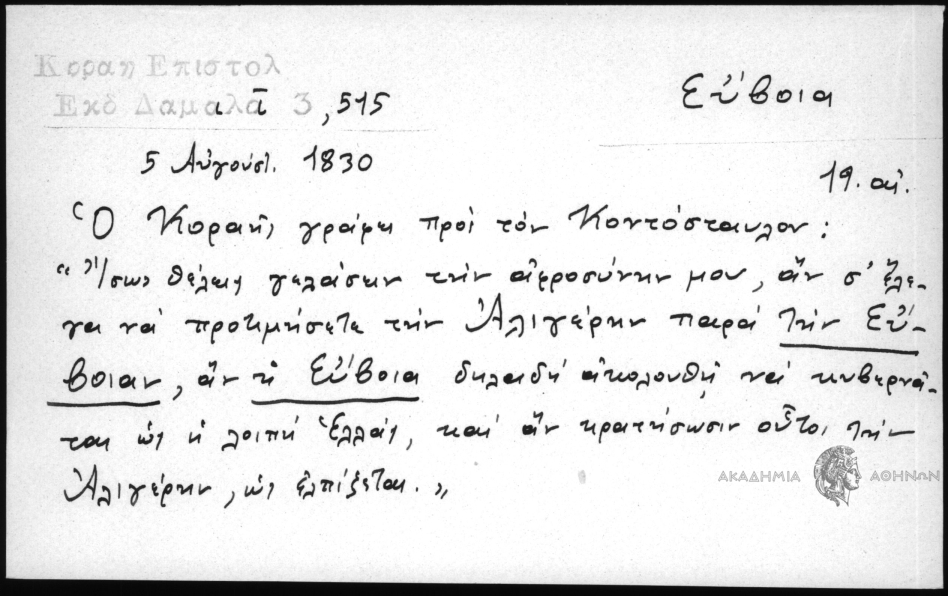 Κοραη Επιστολ
Εκδ Δαμαλα 3, 515
Εὔβοια
5 Αὐγούστ. 1830
19. αἰ.
Ὁ Κοραῆς γράφει πρὸς τὸν Κοντόσταυλον:
"Ἴσως θέλεις γελάσειν τὴν ἀφροσύνην μου, ἂν σ' ἔλε-
γα νὰ προτιμήσετε τὴν Ἀλιγέρην παρὰ τὴν Εὔ-
βοιαν, ἂν ἡ Εὔβοια δηλαδὴ ἀκολουθῇ νὰ κυβερνᾶ-
ται ὡς ἡ λοιπὴ Ἑλλάς, καὶ ἂν κρατήσωσιν οὗτοι τὴν
Ἀλιγέρην, ὡς ἐλπίζεται.„
ΑΚΑΔΗΜΙΑ ΑΘΗΝΩΝ